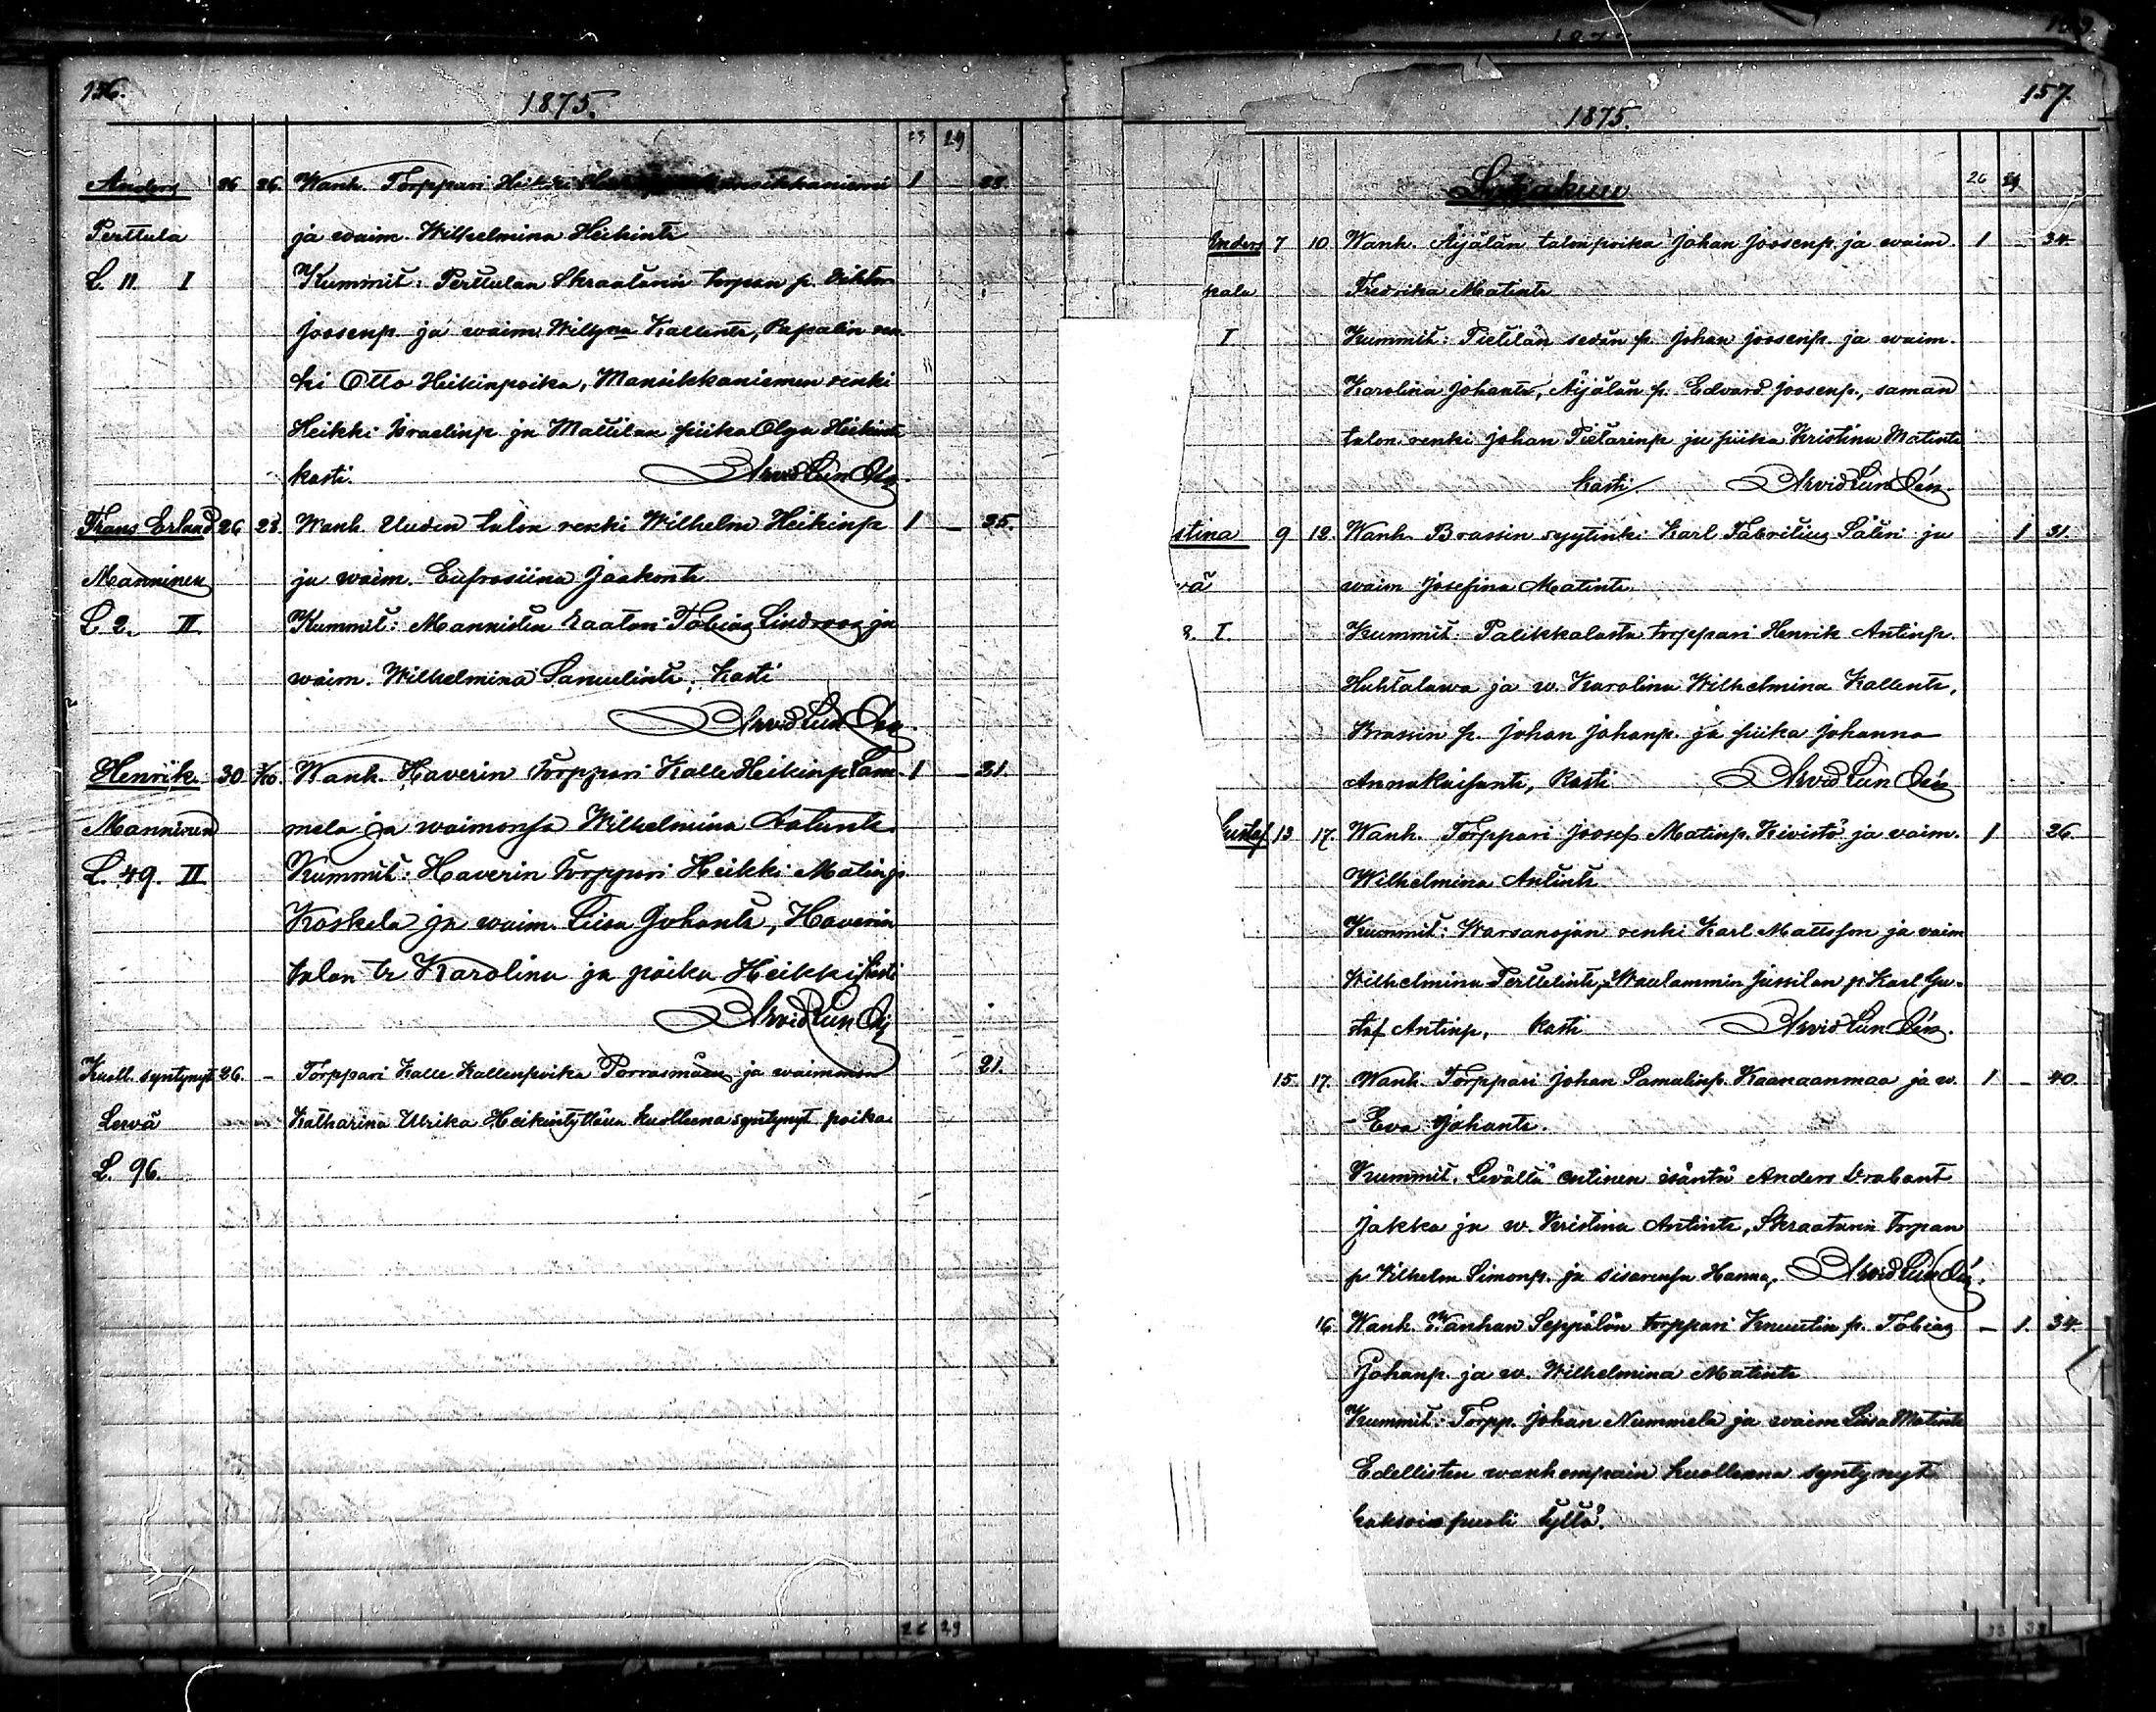 156.
1875.
23 29
Anders 26 26. Wanh. Torppari Heikki Mansikkaniemi 1 - 28.
Perttula ja waim. Wilhelmina Heikintr
L. 11. I Kummit: Perttulan Skraatarin torpan p. Viktor
Joosenp. ja waim. Wilh:na Kallentr, Papalin ren-
ki Otto Heikinpoika, Mansikkaniemen renki
Heikki Israelinp ja Mattilan piika Olga Heikintr
kasti. Arvid Lindén.
Frans Erland 26 28. Wanh. Uuden talon renki Wilhelm Heikinp 1 - 25.
Manninen ja waim. Eufrosiina Jaakontr
L 2. II Kummit: Mannisten Tobias Lindroos ja
waim. Wilhelmina Samulintr, Kasti
Arvid Lindén.
Henrik 30 Wanh. Haverin torppari Kalle Heikinp Lam- 1 - 31.
Manninen mela ja waimonsa Wilhelmina
L. 49. II Kummit: Haverin torppari Heikki Matinp.
Koskela ja waim. Liisa Johantr, Haverin
talon tr Karolina ja poika Heikki, Kasti
Arvid Lindén
Kuoll. syntynyt 26. - Torppari Kalle Kallenpoika Porrasmäen ja waimonsa 21.
Lewä Katharina Ulrika Heikintyttären kuolleena syntynyt poika.
L. 96.
26 29
157.
1875.
26 29
Lokakuu
Anders 7 10. Wanh. Äijälän talonpoika Johan Joosenp. ja waim. 1 - 34.
kala Fredrika Matintr
I Kummit: Pietilän sedän p. Johan Joosenp. ja waim.
Karolina Johantr, Äijälän p. Edvard Joosenp., saman
talon renki Johan Pietarinp ja piika Kristina Matintr
kasti Arvid Lindén.
stina 9 12. Wanh. Brassin syytinki Karl Fabritius Salin ja 1 31.
vä waim Josefina Matintr.
8. I. Kummit: Palikkalasta torppari Henrik Antinp.
Huhtalawa ja w. Karolina Wilhelmina Kallentr,
Brassin p. Johan Johanp. ja piika Johanna
Annakaisantr, Kasti Arvid Lindén
Gustaf 13 17. Wanh. Torppari Joosef Matinp. Kivistö ja vaim. 1 26.
Wilhelmina Antintr
Kummit: Warsanojan renki Karl Mattsson ja vaim
Wilhelmina Perttelintr, Waulammin Jussilan p Karl Gu-
staf Antinp, kasti Arvid Lindén.
15. 17. Wanh. Torppari Johan Samulinp. Kaanaanmaa ja w. 1 - 40.
Eva Johantr.
Kummit. Levältä entinen isäntä Anders Drabant
Jakka ja w. Kristina Antintr, Skraatarin torpan
p Vilhelm Simonp. ja sisarensa Hanna, Arvid Lindén.
16. Wanh. Wanhan Seppälän torppari Knuutin p. Tobias - 1. 34.
Johanp. ja w. Wilhelmina Matintr
Kummit: Torpp. Johan Nummela ja waim Liisa Matintr
Edellisten wanhempain kuolleena syntynyt
kaksois puoli tyttö.
33 33